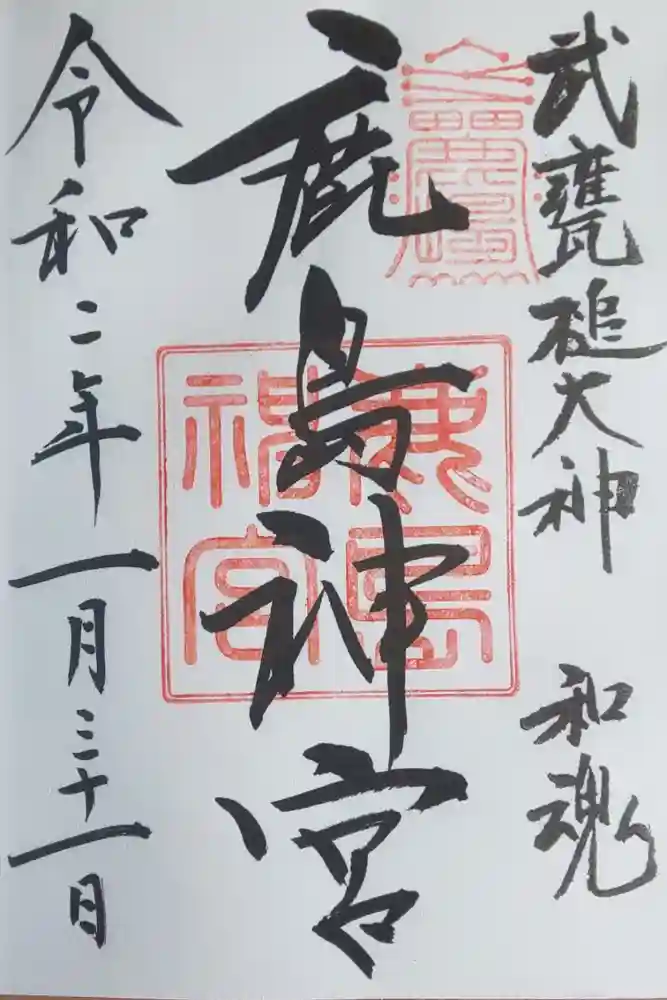 武甕槌大神 和魂
鹿島神宮
令和二年一月三十一日
鹿島
神宮